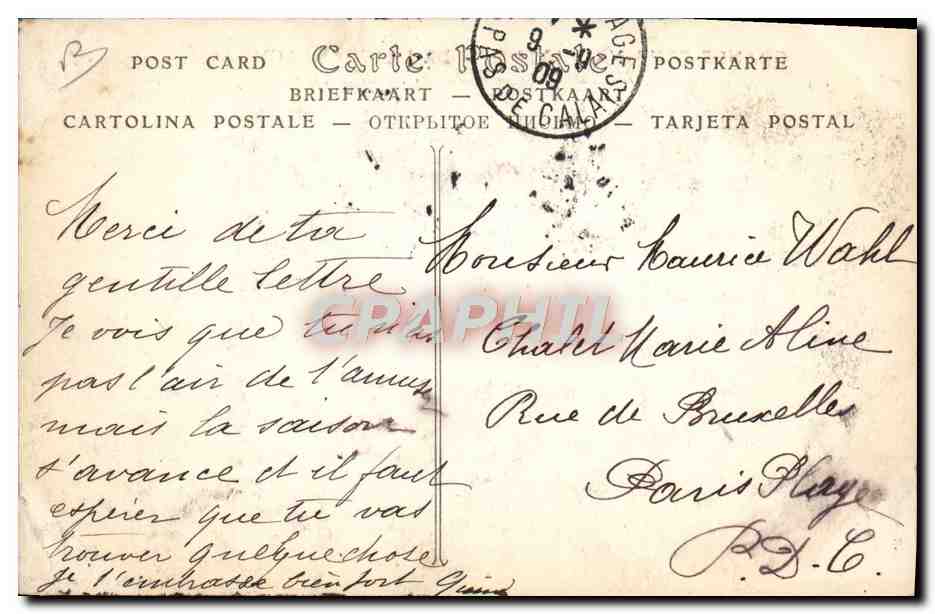 POST CARD Carte Postale POSTKARTE
BRIEFKAART — POSTKAART
CARTOLINA POSTALE — ОТКРЫТОЕ ПИСЬМО — TARJETA POSTAL
9 * 9
09
PAS DE CALAIS
Merci de ta
gentille lettre
Je vois que tu n'as
pas l'air de t'amuser
mais la saison
s'avance et il faut
espérer que tu vas
trouver quelque chose
Je t'embrasse bien fort
Monsieur Maurice Wahl
Chalet Marie Aline
Rue de Bruxelles
Paris Plage
P.D.C.
CPAPHIL